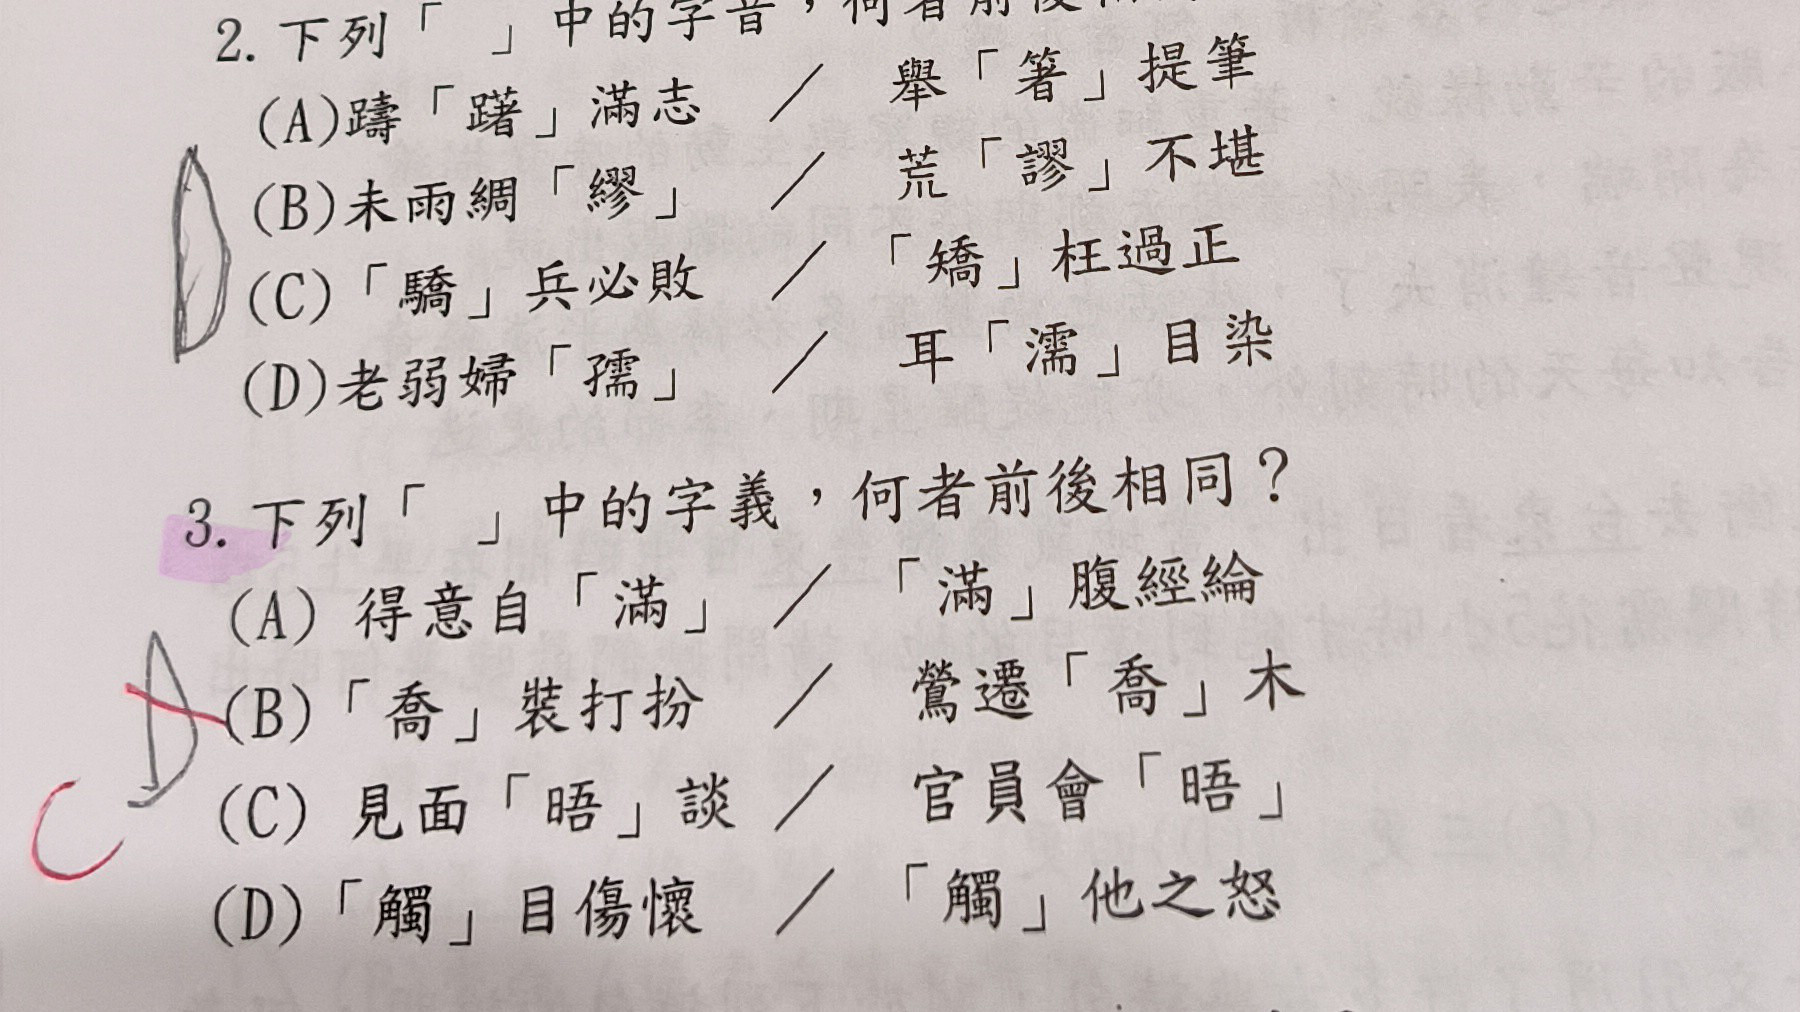 2. 下列「 」中的字音，何者前後
(A)躊「躇」滿志 ／ 舉「箸」提筆
(B)未雨綢「繆」 ／ 荒「謬」不堪
(C)「驕」兵必敗 ／ 「矯」枉過正
(D)老弱婦「孺」 ／ 耳「濡」目染
D
3. 下列「 」中的字義，何者前後相同？
(A) 得意自「滿」 ／ 「滿」腹經綸
(B)「喬」裝打扮 ／ 鶯遷「喬」木
(C) 見面「晤」談 ／ 官員會「晤」
(D)「觸」目傷懷 ／ 「觸」他之怒
D
C